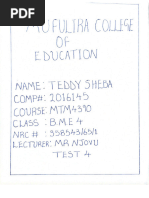 MUFULIRA COLLEGE
OF
EDUCATION
NAME: TEDDY SHEBA
COMP#: 2016145
COURSE: MTM4390
CLASS: B.M.E 4
NRC #: 398543/65/1
LECTURER: MR NJOVU
TEST 4